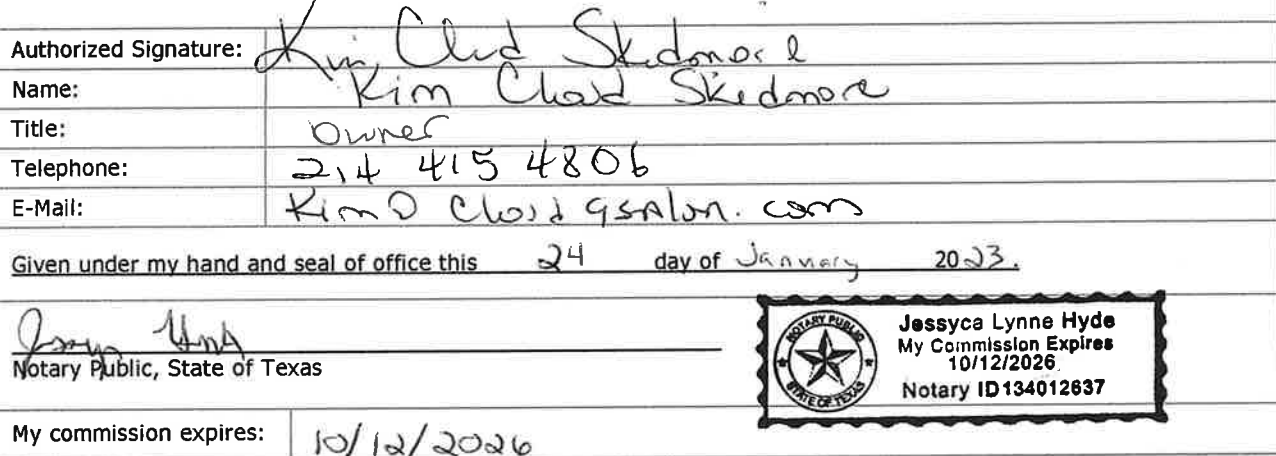 Authorized Signature: Kim Cloud Skedmore
Name: Kim Cloud Skedmore
Title: Owner
Telephone: 214 415 4806
E-Mail: salon.com
Given under my hand and seal of office this 24 day of January 2023.
Notary Public, State of Texas
NOTARY PUBLIC
STATE OF TEXAS
Jessyca Lynne Hyde
My Commission Expires
10/12/2026
Notary ID134012637
My commission expires: 10/12/2026